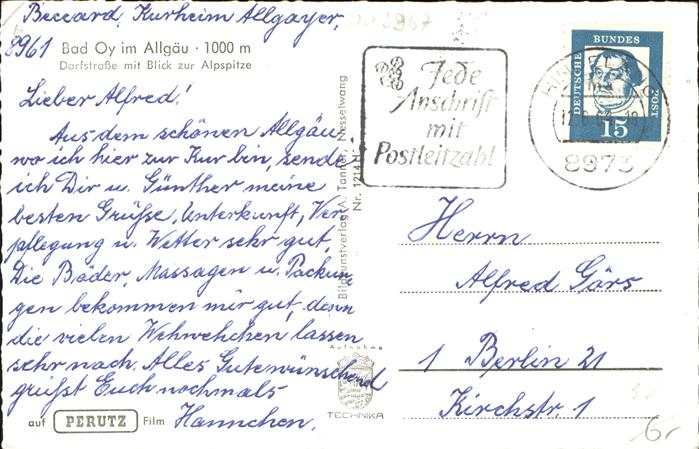 Beccard, Kurheim Allgayer,
8961 Bad Oy im Allgäu · 1000 m
Dorfstraße mit Blick zur Alpspitze
Lieber Alfred!
Aus dem schönen Allgäu,
wo ich hier zur Kur bin, sende
ich Dir u. Günther meine
besten Grüße, Unterkunft, Ver
pflegung u. Wetter sehr gut,
Die Bäder, Massagen u. Packun
gen bekommen mir gut, denn
die vielen Wehwehchen lassen
sehr nach. Alles Gutewünschend
grüßt Euch nochmals
Hannchen.
auf PERUTZ Film
Bildkunstverlag A. Tanner, Nesselwang
Nr. 1214 H
Aufnahme
TECHNIKA
Jede
Anschrift
mit
Postleitzahl
DEUTSCHE BUNDES POST
15
8973
Herrn
Alfred Görs
1 Berlin 21
Kirchstr. 1
6,-